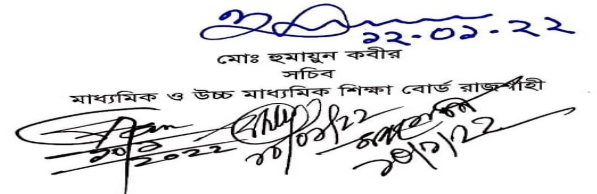 ১২-০১-২২
মোঃ হুমায়ুন কবীর
সচিব
মাধ্যমিক ও উচ্চ মাধ্যমিক শিক্ষা বোর্ড রাজশাহী
২০২২
১০/০১/২২
১০/১/২২